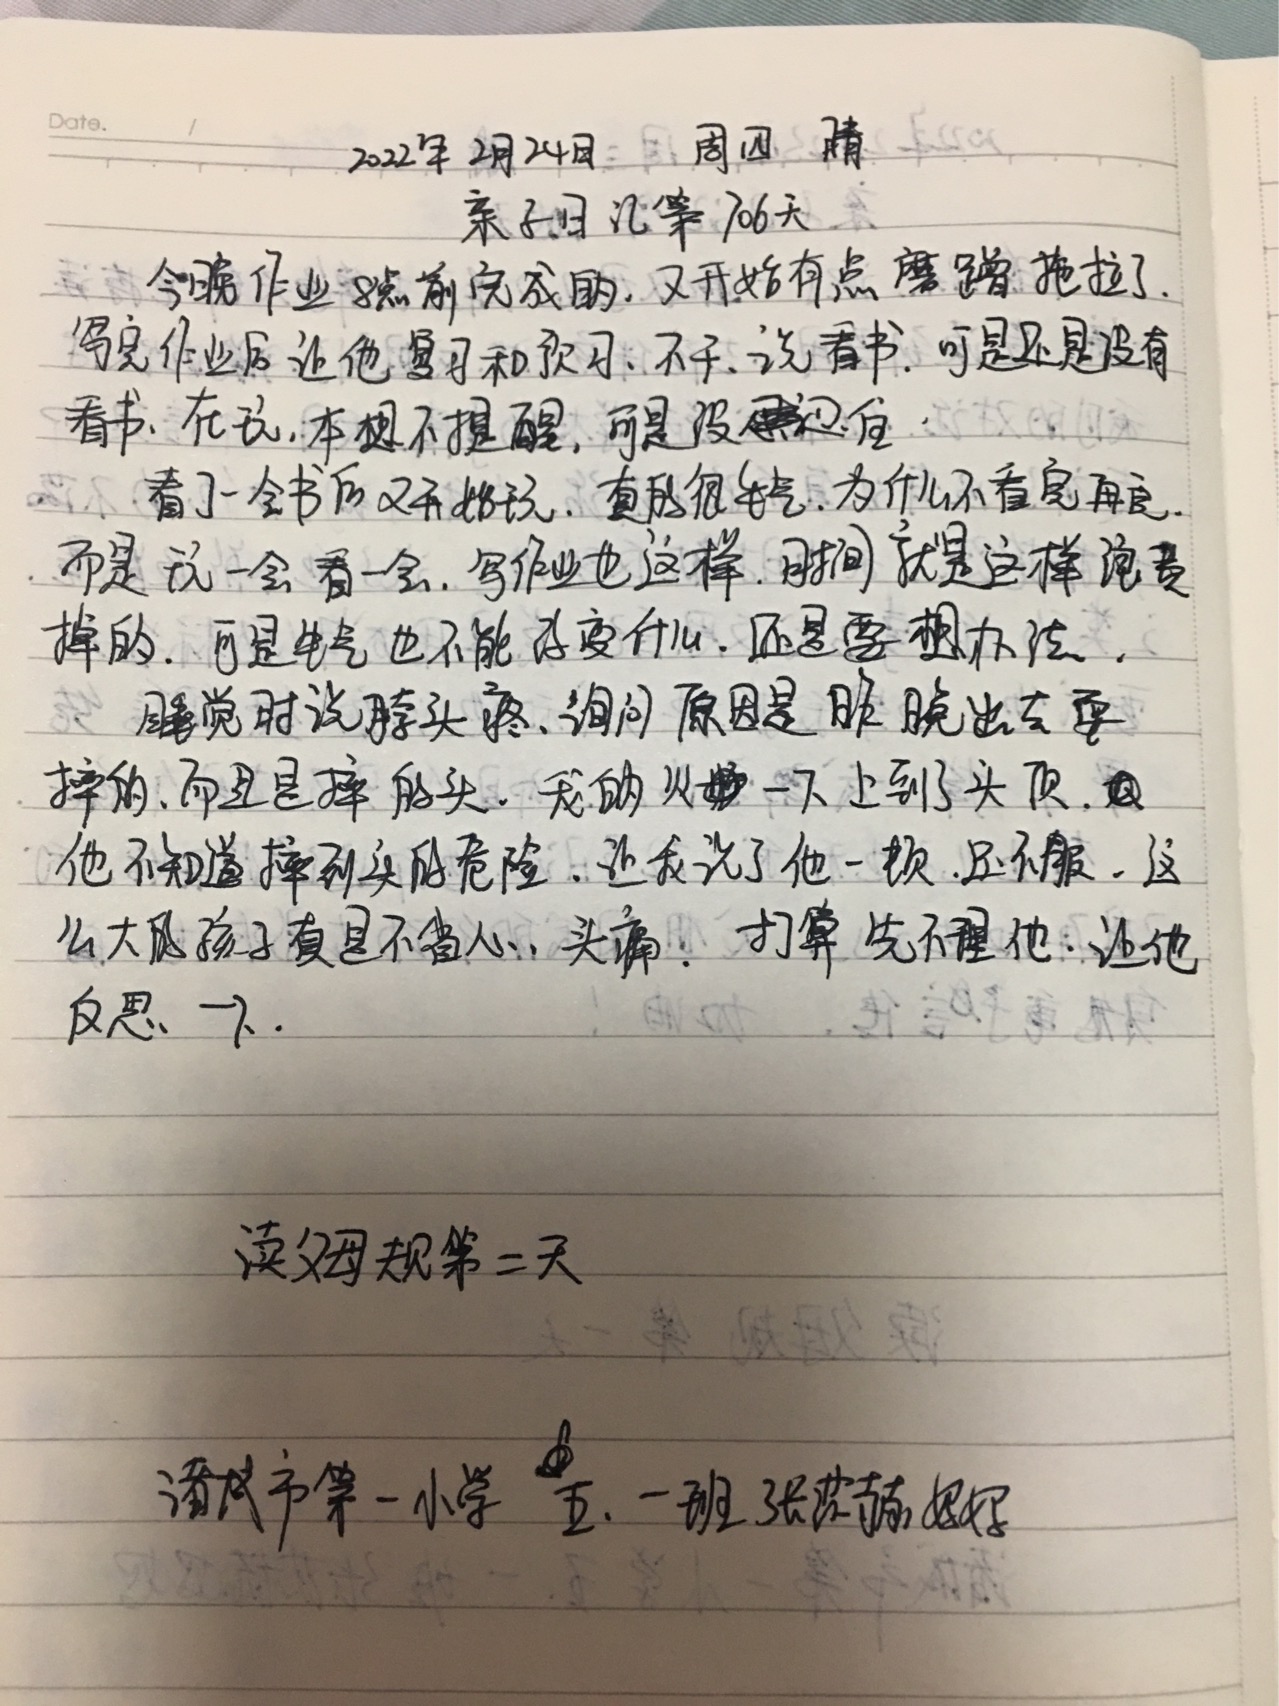 Date. /
2022年 2月24日 周四 晴
亲子日记第706天
今晚作业8点前完成的.又开始有点磨蹭拖拉了.
写完作业后让他复习和预习、不干、说看书.可是还是没有
看书、在玩.本想不提醒,可是没忍住.
看了一会书后又开始玩.真的很生气.为什么不看完再玩.
而是玩一会看一会.写作业也这样.时间就是这样浪费
掉的.可是生气也不能改变什么.还是要想办法.
睡觉时说脖头疼、询问原因是昨晚出去耍
摔的、而且是摔的头.我的火一下上到了头顶.
他不知道摔到头的危险.让我说了他一顿.还不服.这
么大的孩子真是不省心、头痛!打算先不理他.让他
反思一下.
读父母规第二天
诸城市第一小学 五.一班 张 妈妈